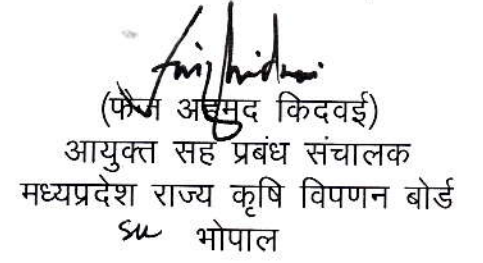 (फैज अहमद किदवई)
आयुक्त सह प्रबंध संचालक
मध्यप्रदेश राज्य कृषि विपणन बोर्ड
भोपाल